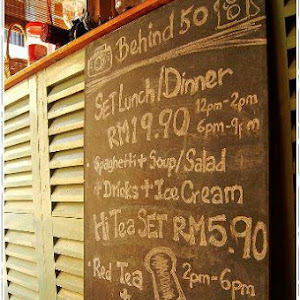 Behind 50
SET Lunch/Dinner
RM19.90 12pm-2pm
6pm-9pm
• Spaghetti + Soup/Salad
+ Drinks + Ice Cream
Hi Tea SET RM5.90
• Red Tea 2pm-6pm
+